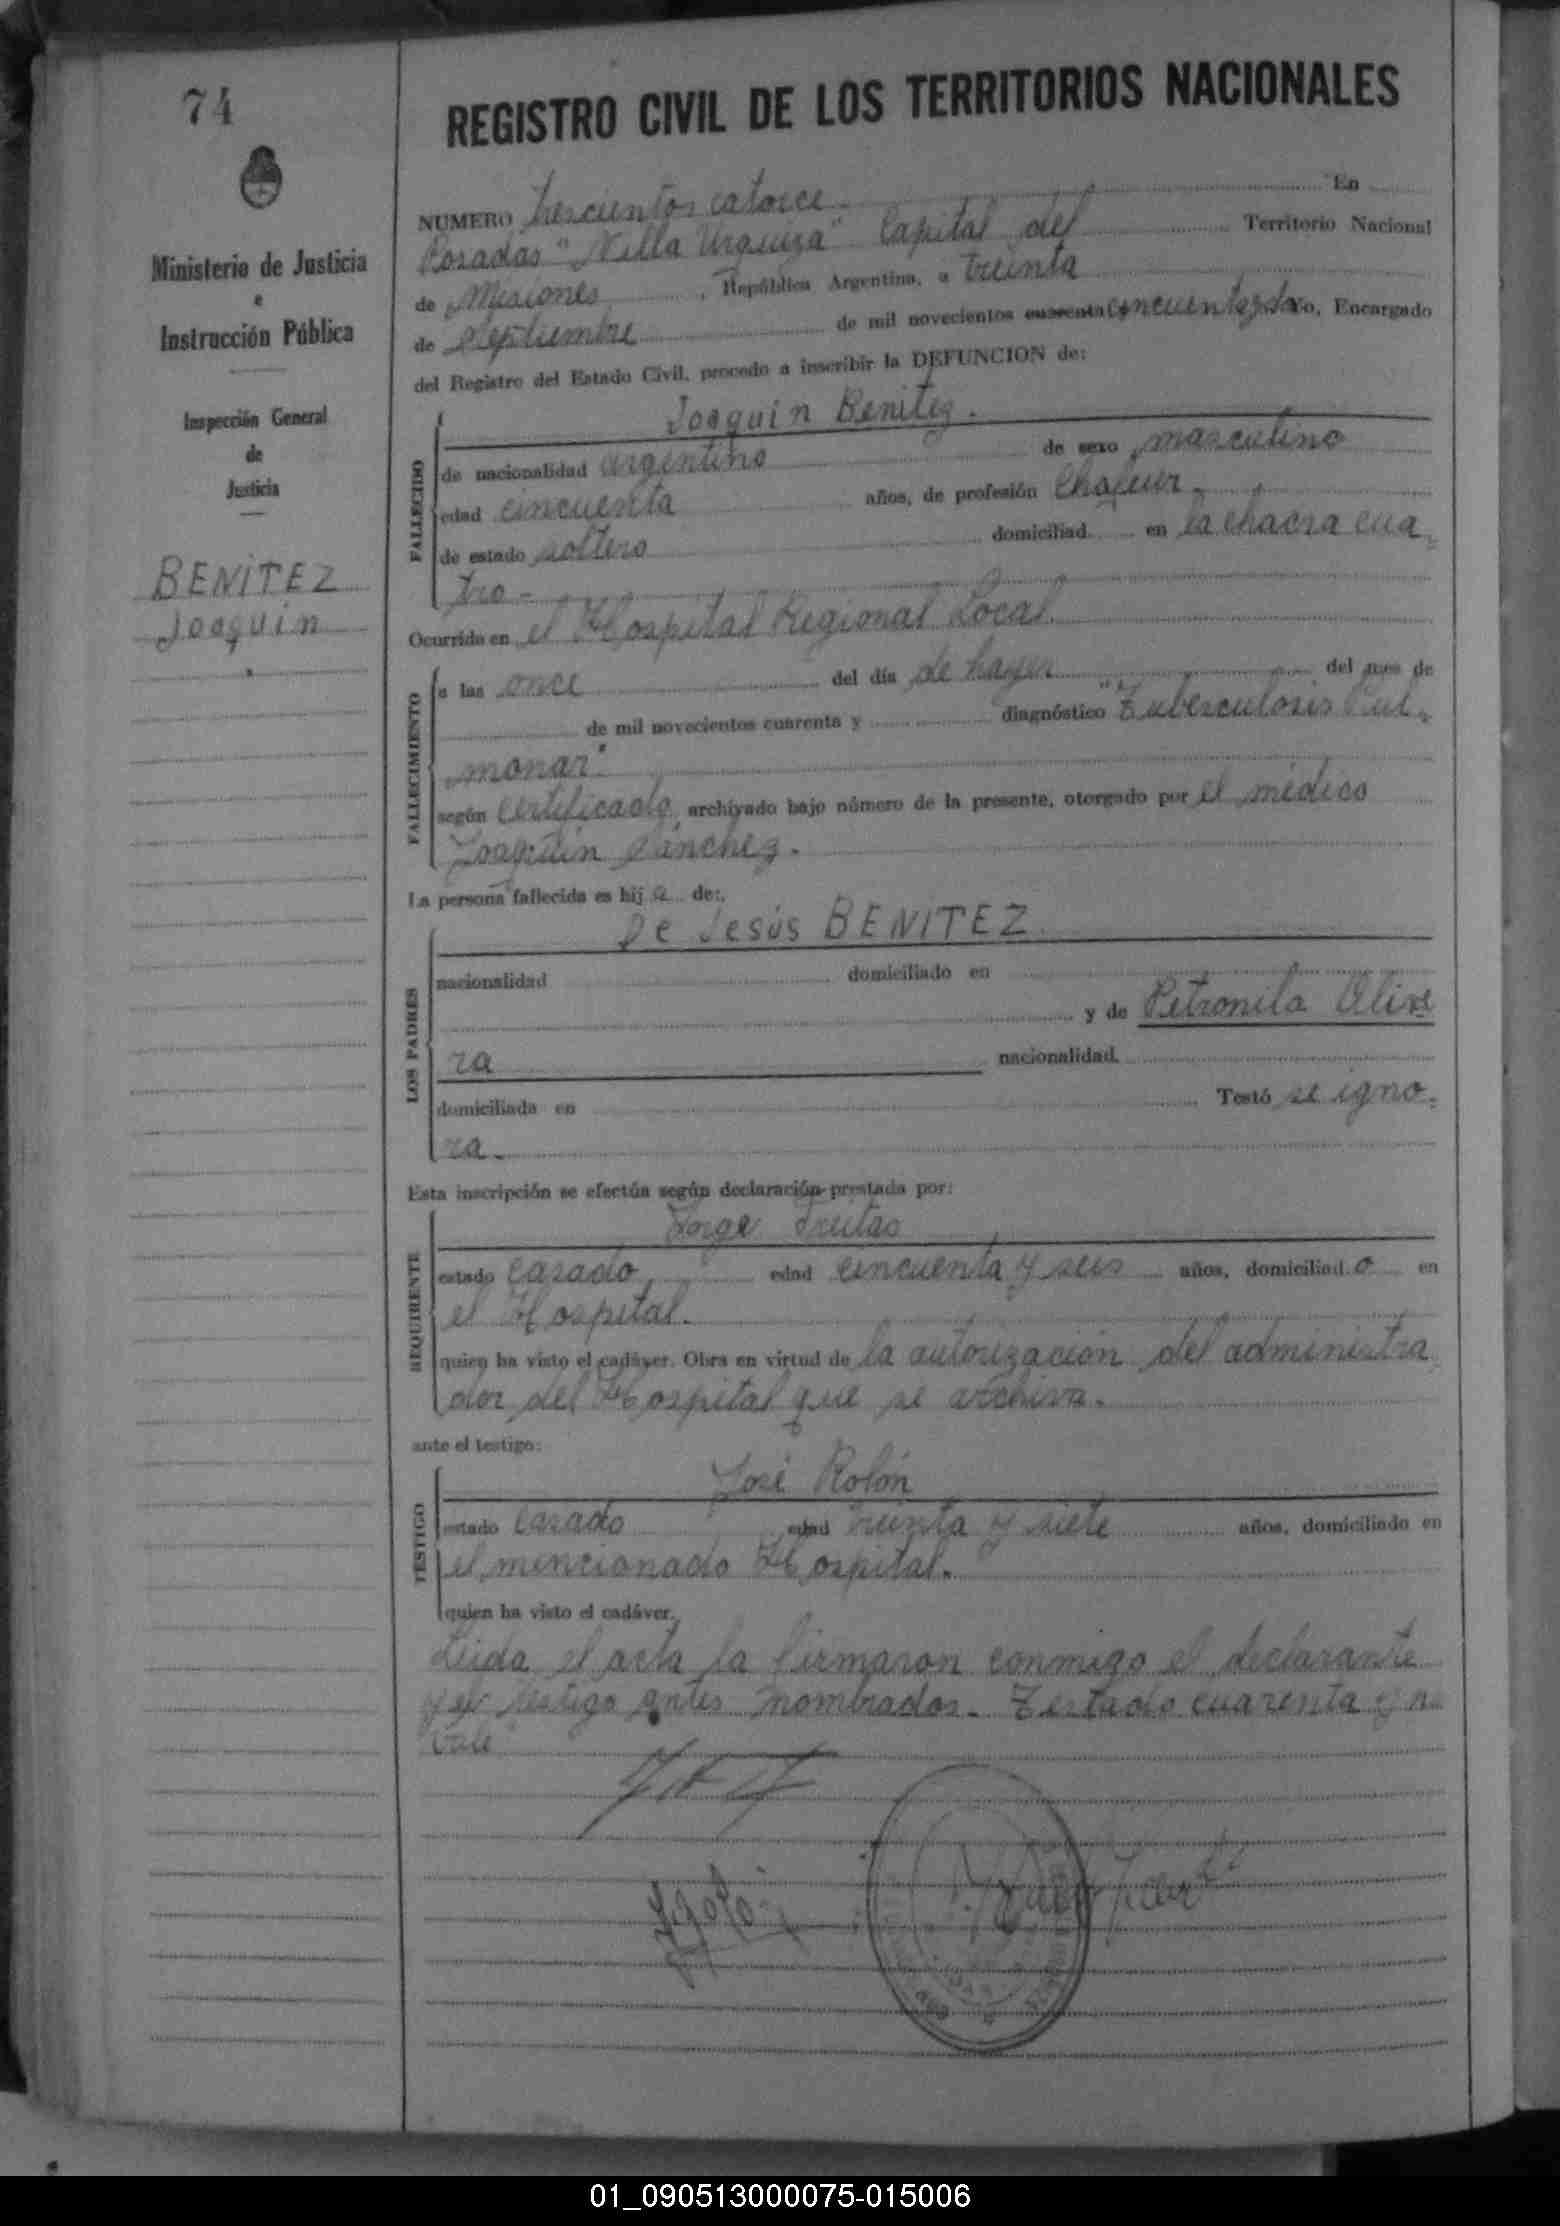 74
REGISTRO CIVIL DE LOS TERRITORIOS NACIONALES
Ministerio de Justicia
e
Instrucción Pública
Inspección General
de
Justicia
BENITEZ
Joaquin
NUMERO trescientos catorce. En
Posadas "Villa Urquiza" Capital del Territorio Nacional
de Misiones, República Argentina, a treinta
de septiembre de mil novecientos cuarenta cincuenta yo, Encargado
del Registro del Estado Civil, procedo a inscribir la DEFUNCION de:
Joaquin Benitez.
FALLECIDO
de nacionalidad argentino de sexo masculino
edad cincuenta años, de profesión Chofeur.
de estado soltero domiciliad en la chacra cua-
tro-
Ocurrida en el Hospital Regional Local.
FALLECIMIENTO
a las once del día de hayer del mes de
de mil novecientos cuarenta y diagnóstico "Tuberculosis Pul-
monar"
según certificado, archivado bajo número de la presente, otorgado por el médico
Joaquin Sánchez.
La persona fallecida es hij de:
De Jesús BENITEZ
LOS PADRES
nacionalidad domiciliado en
y de Petronila Olive
ra nacionalidad
domiciliada en Testó se igno-
ra.
Esta inscripción se efectúa según declaración prestada por:
Jorge Freitas
REQUIRENTE
estado casado, edad cincuenta y seis años, domiciliad o en
el Hospital.
quien ha visto el cadáver. Obra en virtud de la autorización del administra
dor del Hospital que se archiva.
ante el testigo:
José Rolón
TESTIGO
estado casado edad treinta y siete años, domiciliado en
el mencionado Hospital.
quien ha visto el cadáver.
Leida el acta la firmaron conmigo el declarante
y el testigo antes nombrados. Testado cuarenta y n
vale
01_090513000075-015006